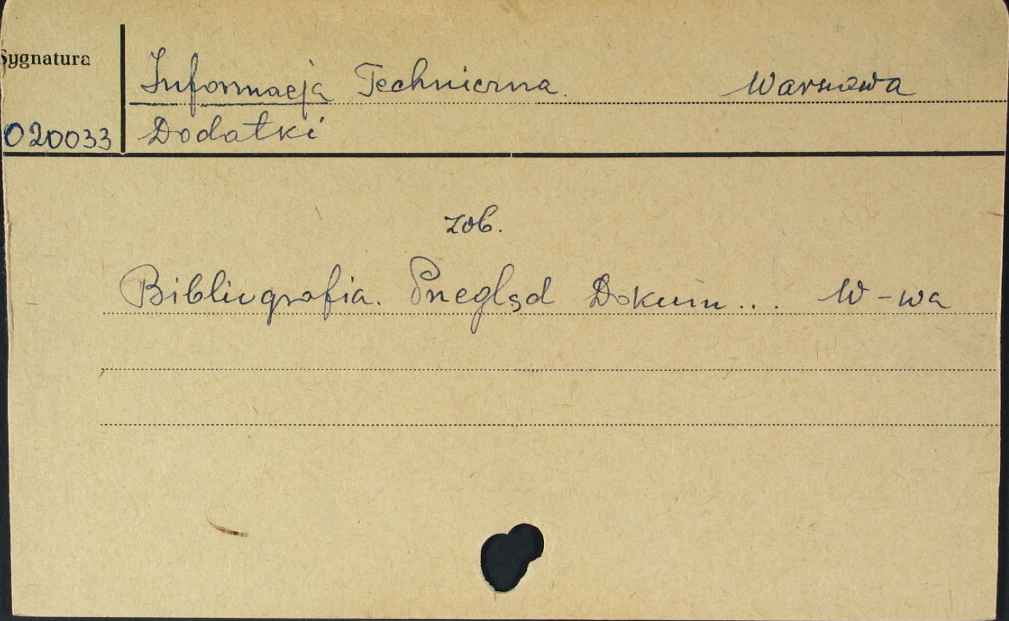 Sygnatura
Informacja Techniczna. Warszawa
020033 Dodatki
zob.
Bibliografia. Przegląd Dokum... W-wa